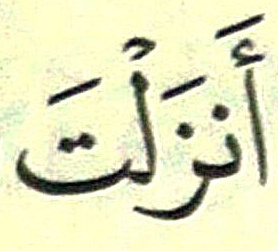 أَنزَلْتَ